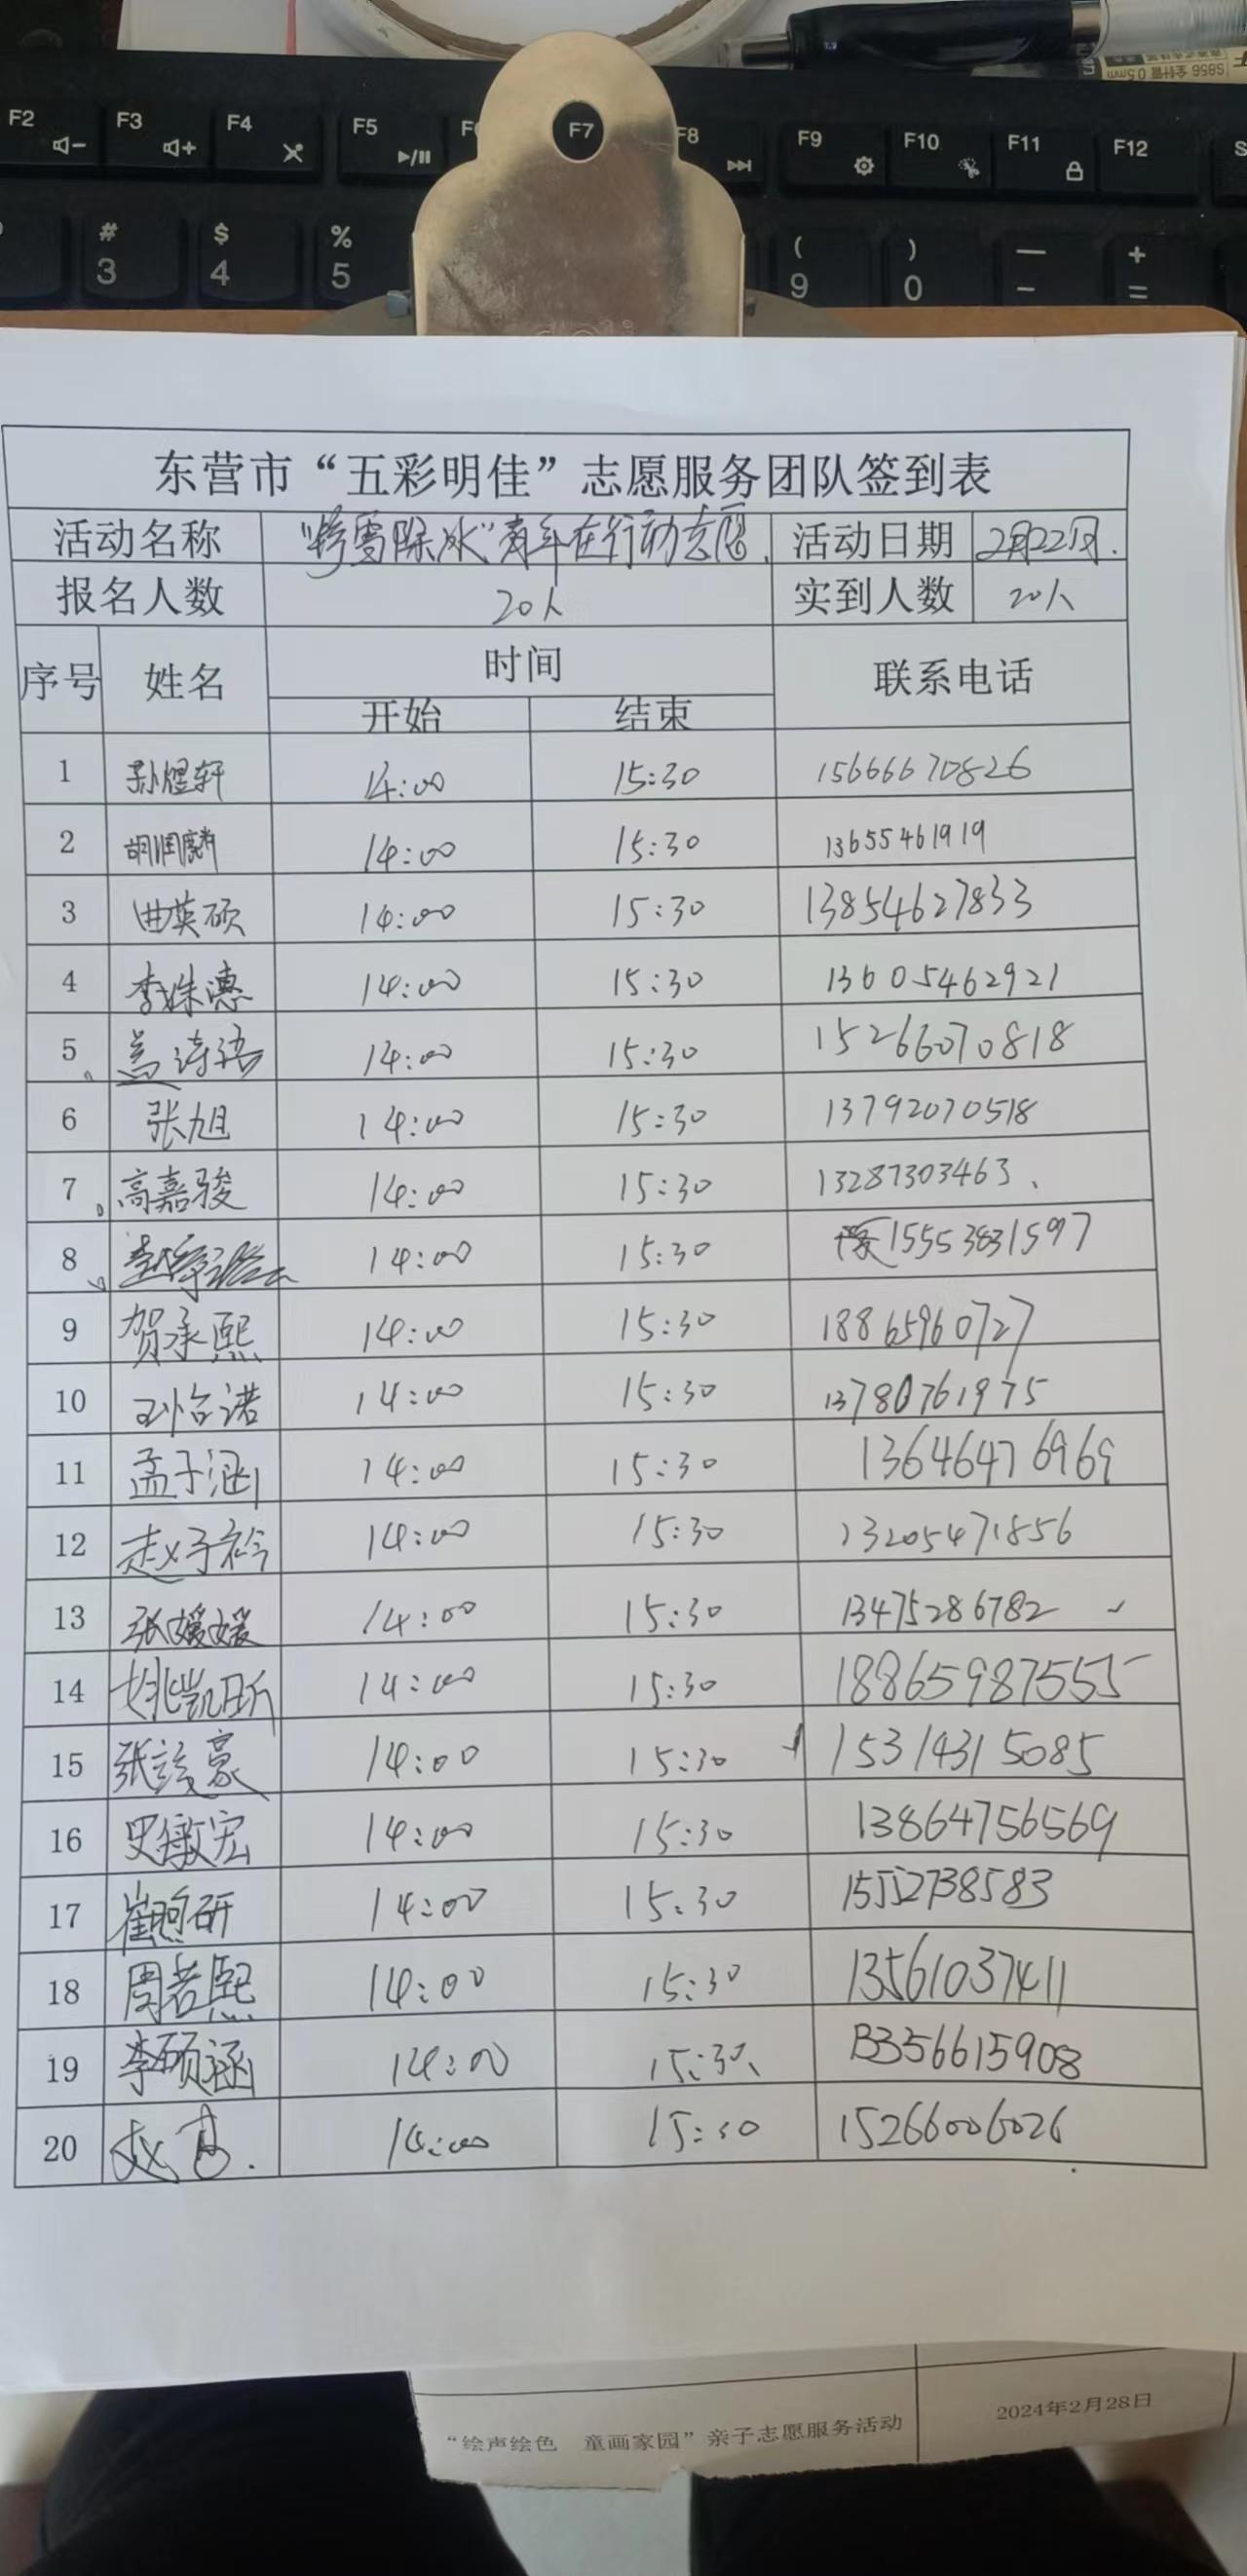 F2 F3 F4 F5 F7 F8 F9 F10 F11 F12
# $ % ( ) — +
3 4 5 9 0 - =
S856 全针管 0.5mm
东营市“五彩明佳”志愿服务团队签到表
活动名称 除冰”青年在行动志愿 活动日期 2月22日.
报名人数 20人 实到人数 20人
序号 姓名 时间 联系电话
开始 结束
1 孙煜轩 14:00 15:30 15666670826
2 胡润麟 14:00 15:30 13655461919
3 曲英硕 14:00 15:30 13854627833
4 李姝漶 14:00 15:30 13605462921
5 诗语 14:00 15:30 15266070818
6 张旭 14:00 15:30 13792070518
7 高嘉骏 14:00 15:30 13287303463
8 14:00 15:30 15553831597
9 贺承熙 14:00 15:30 18865960727
10 怡诺 14:00 15:30 13780761975
11 孟子涵 14:00 15:30 13646476969
12 赵子衿 14:00 15:30 13205471856
13 张媛媛 14:00 15:30 13475286782
14 姚凯昕 14:00 15:30 18865987555
15 张 豪 14:00 15:30 15314315085
16 史 宏 14:00 15:30 13864756569
17 崔 研 14:00 15:30 15552738583
18 周若熙 14:00 15:30 13561037411
19 李硕涵 14:00 15:30 13356615908
20 赵 14:00 15:30 15266006026
“绘声绘色 童画家园”亲子志愿服务活动 2024年2月28日